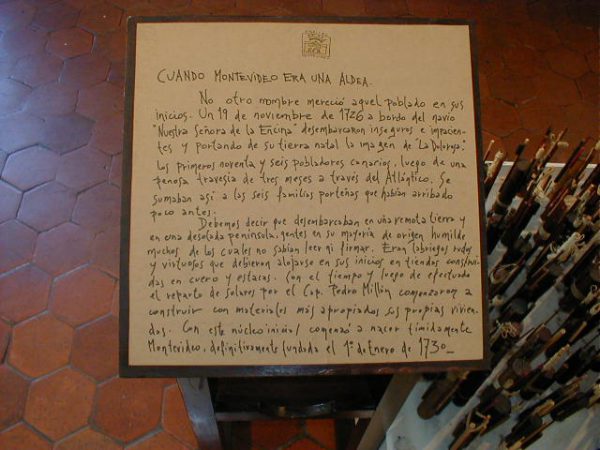 CUANDO MONTEVIDEO ERA UNA ALDEA.
No otro nombre mereció aquel poblado en sus
inicios. Un 19 de noviembre de 1726 a bordo del navío
"Nuestra Señora de la Encina" desembarcaron inseguros e impacien-
tes y portando de su tierra natal la imagen de "La Dolorosa"
los primeros noventa y seis pobladores canarios, luego de una
penosa travesía de tres meses a través del Atlántico. Se
sumaban así a las seis familias porteñas que habían arribado
poco antes.
Debemos decir que desembarcaban en una remota tierra y
en una desolada península, gentes en su mayoría de origen humilde
muchos de los cuales no sabían leer ni firmar. Eran labriegos rudos
y virtuosos que debieron alojarse en sus inicios en tiendas construi-
das en cuero y estacas. Con el tiempo y luego de efectuado
el reparto de solares por el Cap. Pedro Millán comenzaron a
construir con materiales más apropiados sus propias vivien-
das. Con este núcleo inicial comenzó a nacer tímidamente
Montevideo, definitivamente fundada el 1º de Enero de 1730_